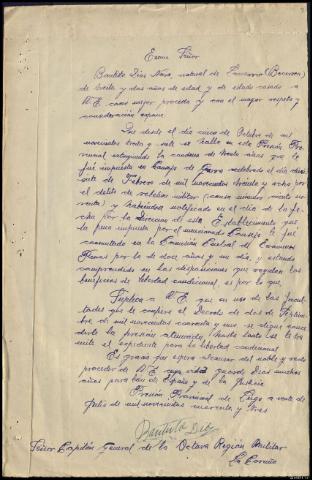 Excmo Señor
Bautista Dios Nava, natural de
de treinta y dos años de edad, y de estado casado a
V.E. como mejor proceda y con el mayor respeto y
consideración expone:
Que desde el día cinco de Octubre de mil
novecientos treinta y siete se halla en esta Prisión Pro-
vincial extinguiendo la condena de treinta años que le
fué impuesta en Consejo de Guerra celebrado el día
siete de Febrero de mil novecientos treinta y ocho por
el delito de rebelión militar
y habiendole notificado en el día de la fe-
cha por la Direccion de este Establecimiento que
la pena impuesta por el mencionado Consejo le fué
conmutada en la Comisión Central de Examenes
Penas por la de doce años y un día, y estando
comprendido en las disposiciones que regulan los
beneficios de libertad condicional, es por lo que
Suplica a V.E. que en uso de las facul-
tades que le confiere el Decreto de dos de Septiem-
bre de mil novecientos cuarenta y uno se digne conce-
derle la prisión atenuada, hasta tanto se le tra-
mite el expediente para la libertad condicional.
Es gracia que espera alcanzar del noble y recto
proceder de V.E. cuya vida guarde Dios muchos
años para bien de España y de la Justicia.
Prisión Provincial de Vigo a veinte de
Julio de mil novecientos cuarenta y tres
Bautista Dios
Señor Capitán General de la Octava Región Militar
La Coruña